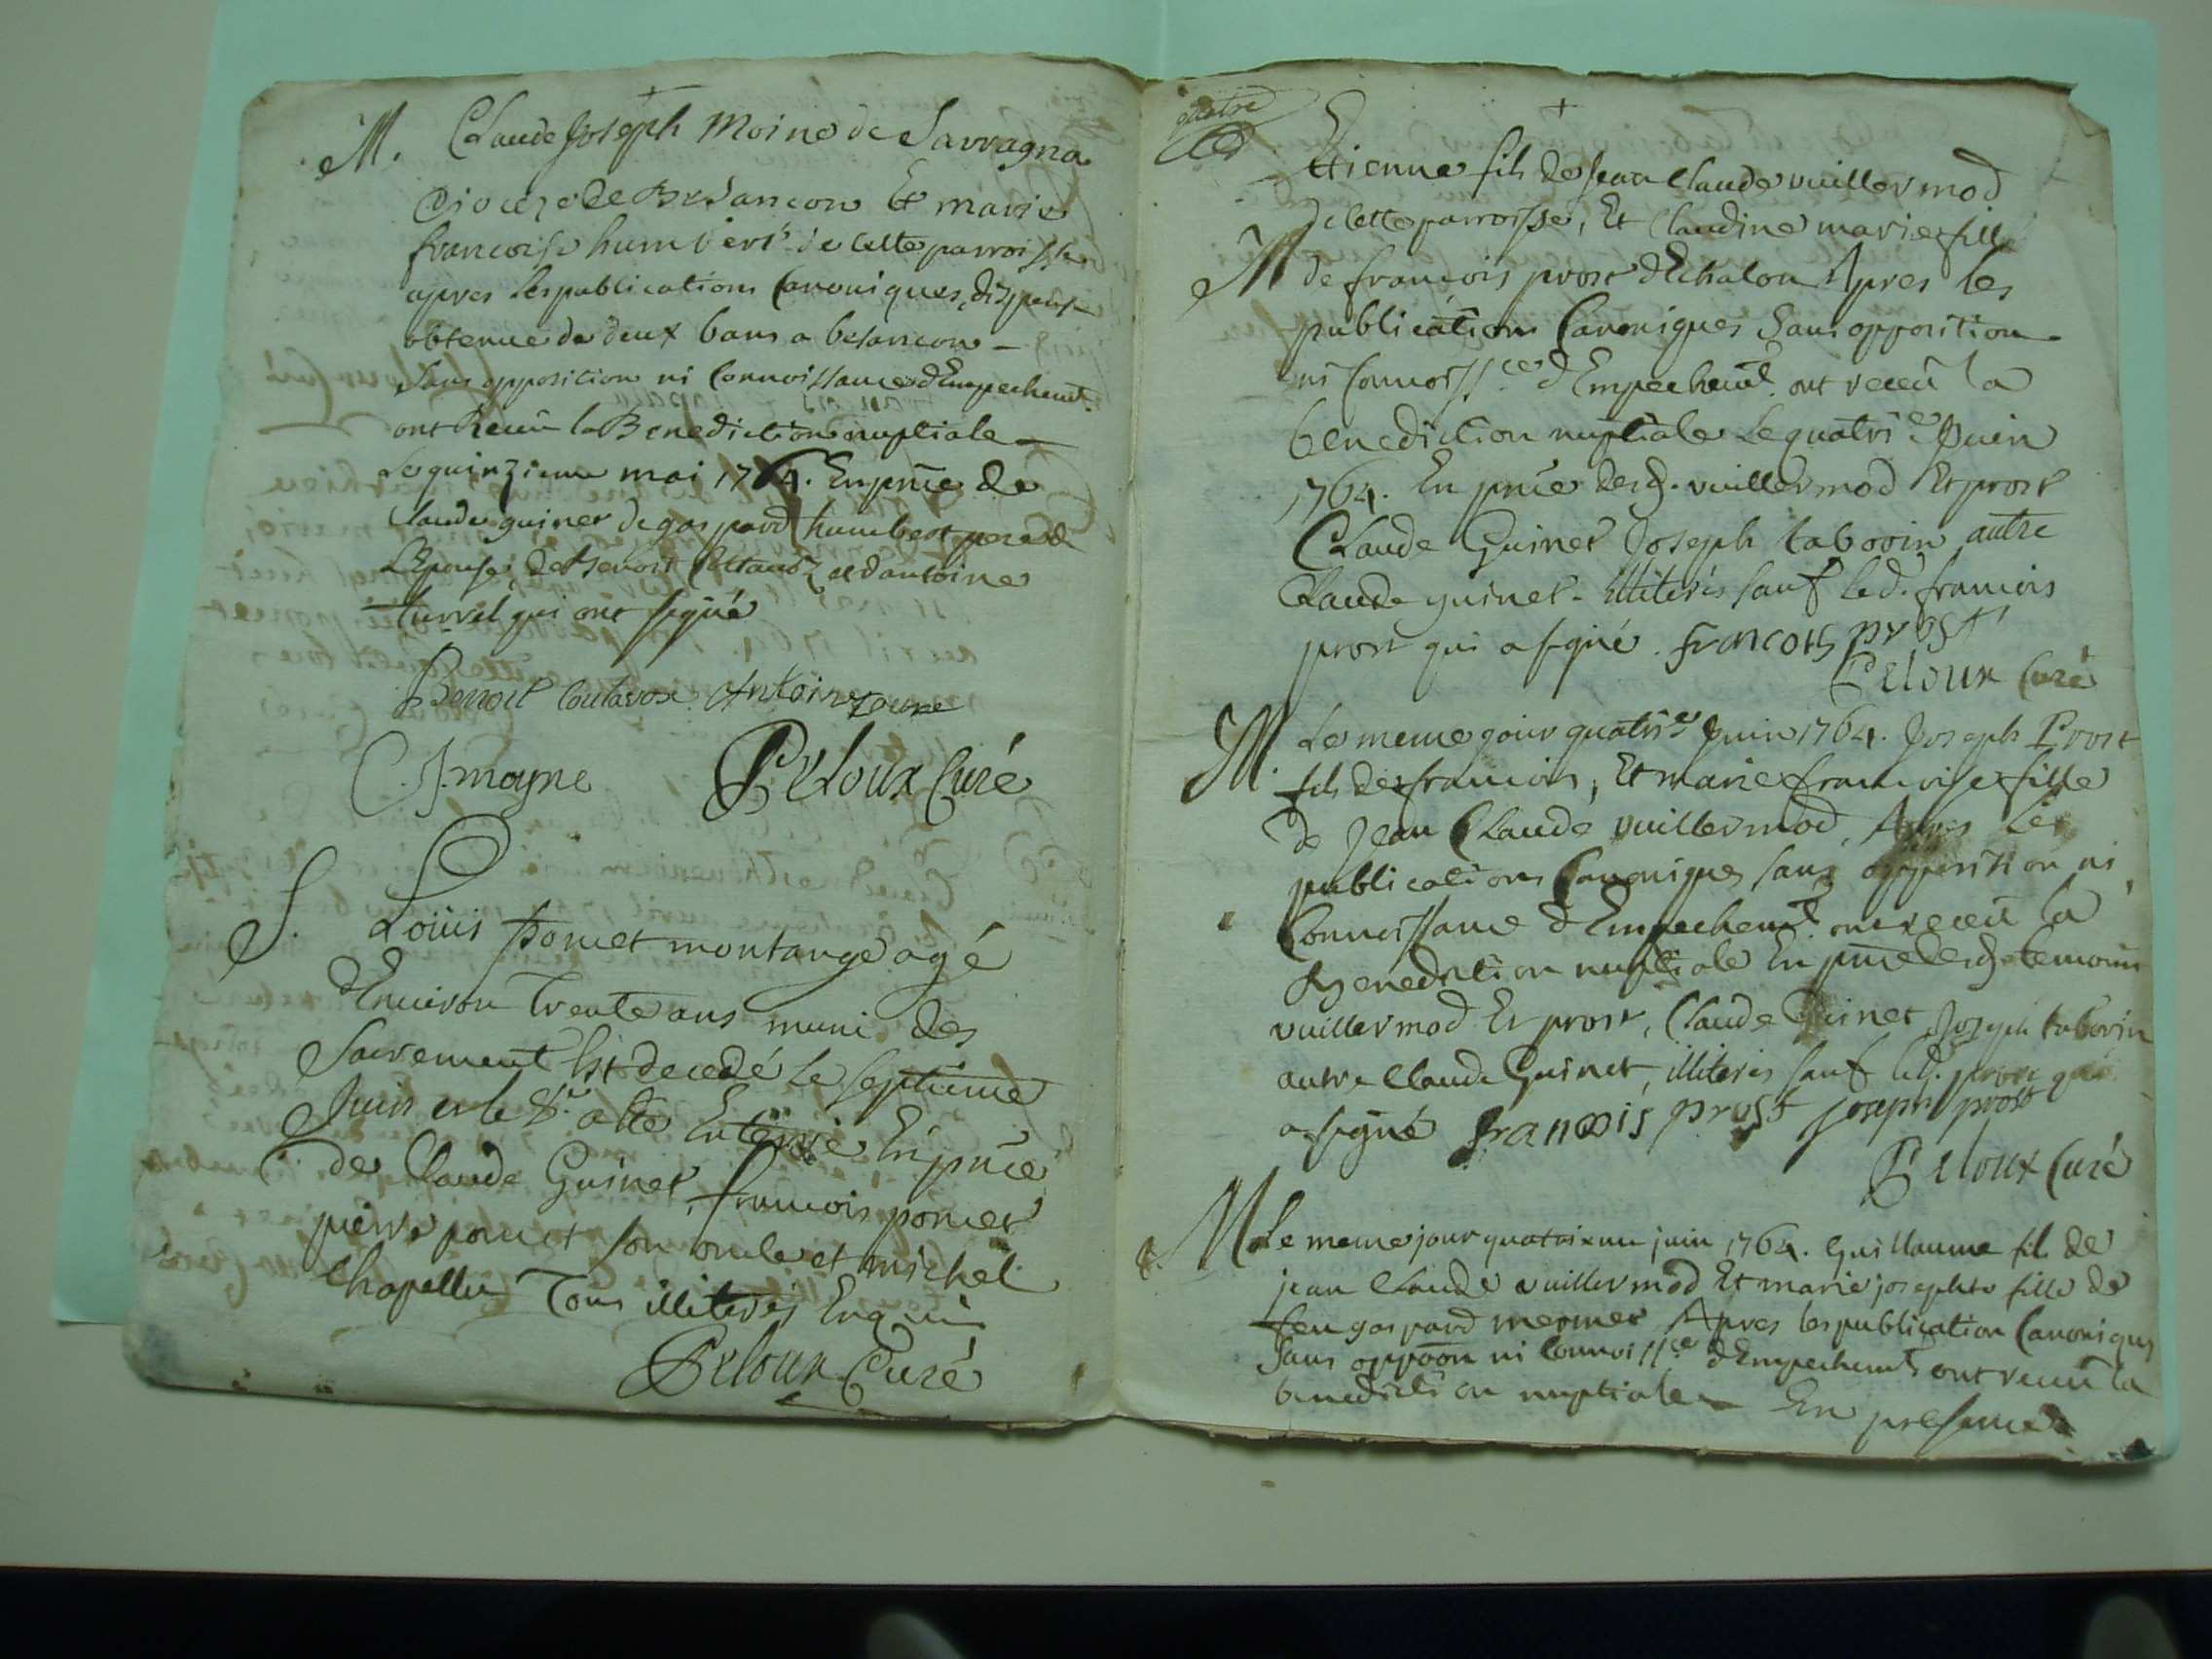 M. Claude Joseph Moine de Sarragna
Dioceze de Besancon Et marie
francoise humbert de cette parroisse
apres les publications Canoniques, dispense
obtenue de deux bans a besancon –
Sans opposition ni Connoissance d'Empechemt.
ont Receu la Benediction nuptiale –
Le quinzieme mai 1764. En pnce de
Claude guinet de gaspard humbert pere de
L'Epouse, de Benoit Coutavoz et d'antoine
turrel qui ont signé
Benoit Coutavox Antoine
C. J. moyne Peloux Curé
S. Loüis poncet montange agé
d'Environ Trente ans muni des
Sacrement Est decedé le septieme
Juin et le 8e a été Enterré En pnce
de Claude Guinet, francois poncet
pierre poncet son oncle et michel
Chapellu Tous illiteres Enquis
Peloux Curé
quatre
Etienne fils de Jean Claude vuillermod
de cette parroisse, Et Claudine marie fille
M de francois prost d'Echalon Apres les
publications Canoniques Sans opposition
ni Connoissce d'Empechemt. ont receu la
benediction nuptiale Le quatrie Juin
1764. En pnce desd. vuillermod Et prost
Claude Guinet Joseph taborin autre
Claude guinet – illiterés sauf led. francois
prost qui a signé. francois prost
Peloux Curé
M. Le meme jour quatrie Juin 1764. Joseph Prost
fils de francois, Et marie francoise fille
de Jean Claude vuillermod, Apres Les
publications Canoniques sans opposition ni
Connoissance d'Empechemt. ont receu la
Benediction nuptiale En pnce desd. temoins
vuillermod Et prost, Claude Guinet Joseph taborin
autre Claude Guinet, illiterés sauf led. prost qui
a signé francois prost joseph prost
Peloux Curé
M Le meme jour quatrieme juin 1764. Guillaume fils de
jean Claude vuillermod Et marie josephte fille de
feu gaspard mermet Apres les publication Canoniques
Sans oppoon ni Connoissce d'Empechemt ont receu la
benediction nuptiale – En presence